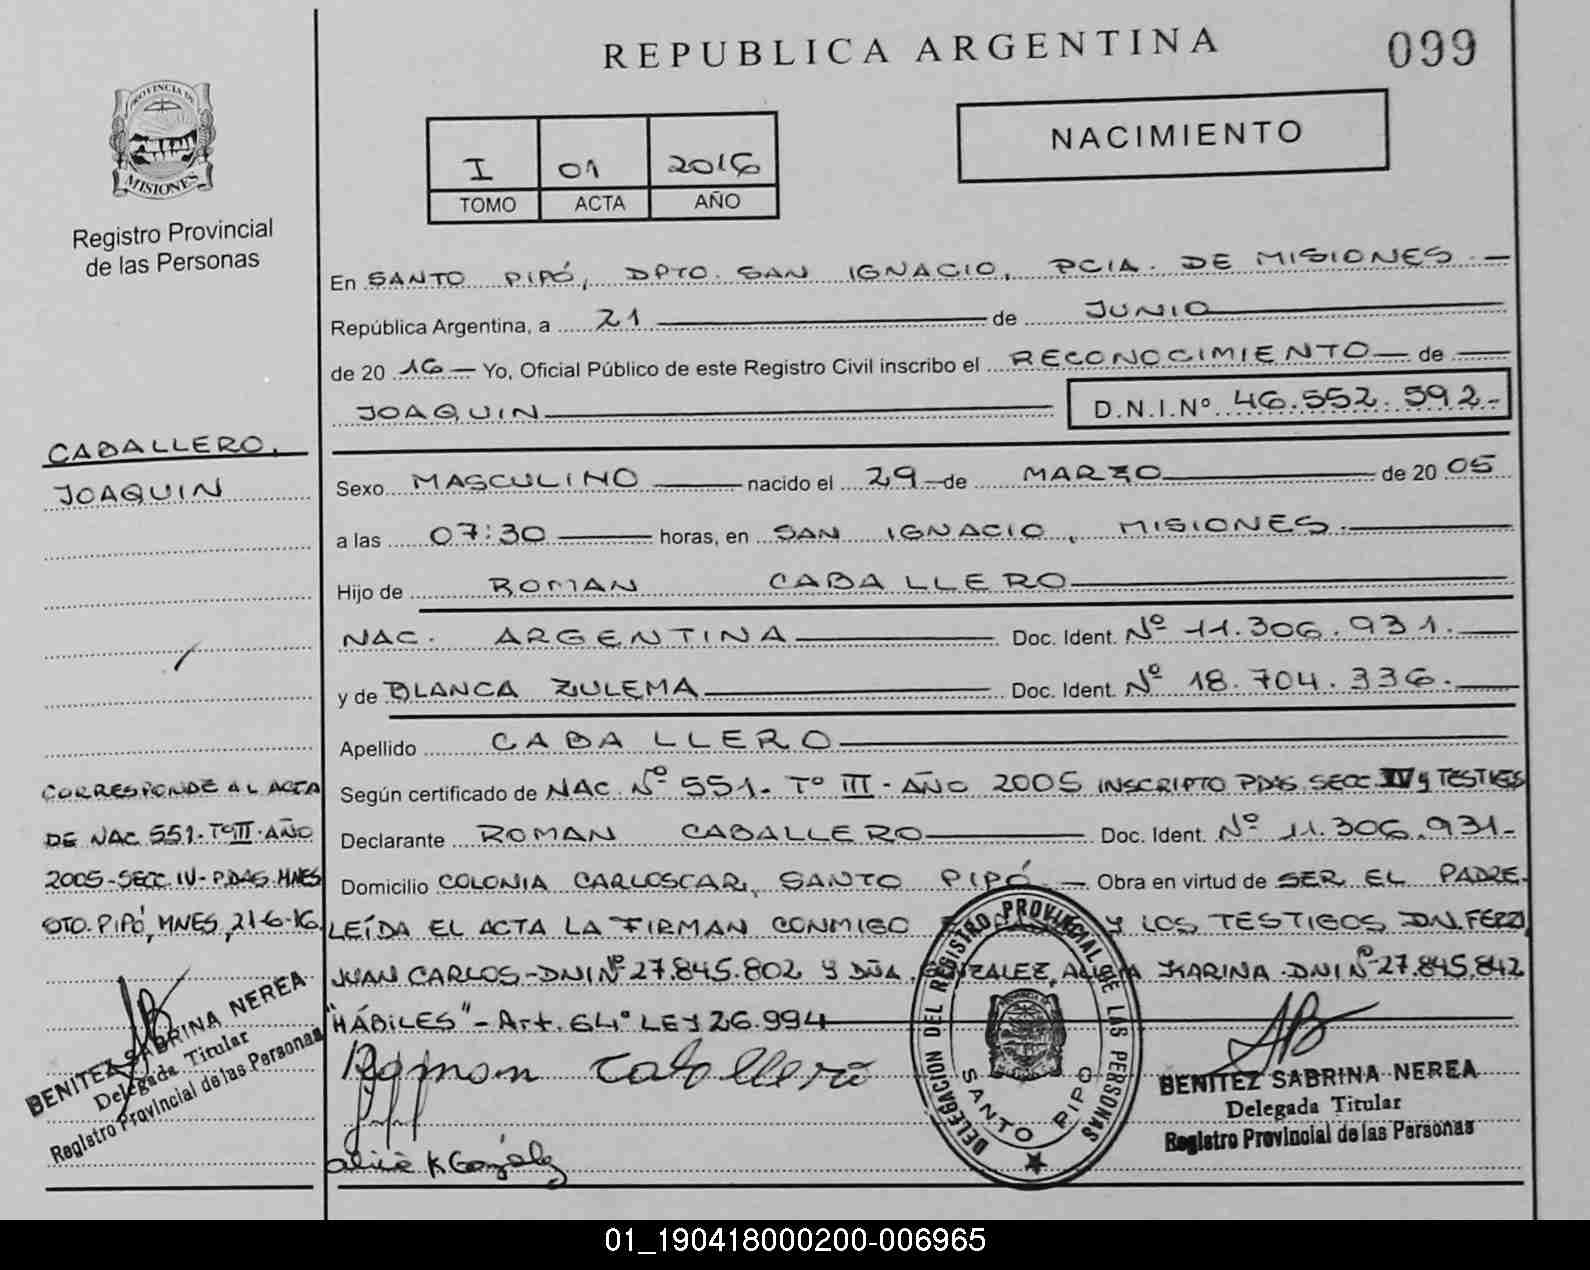 REPUBLICA ARGENTINA
099
PROVINCIA DE
MISIONES
Registro Provincial
de las Personas
I 01 2016
TOMO ACTA AÑO
NACIMIENTO
En SANTO PIPÓ, DPTO. SAN IGNACIO, PCIA. DE MISIONES.-
República Argentina, a 21 de JUNIO
de 2016 Yo, Oficial Público de este Registro Civil inscribo el RECONOCIMIENTO de
JOAQUIN D.N.I.Nº 46.552.592.-
CABALLERO,
JOAQUIN
Sexo MASCULINO nacido el 29 de MARZO de 2005
a las 07:30 horas, en SAN IGNACIO, MISIONES.
Hijo de ROMAN CABALLERO
NAC. ARGENTINA Doc. Ident. Nº 11.306.931.
y de BLANCA ZULEMA Doc. Ident. Nº 18.704.336.
Apellido CABALLERO
Según certificado de NAC. Nº 551. Tº III - AÑO 2005 INSCRIPTO PDAS. SECC. IV y TESTIGOS
Declarante ROMAN CABALLERO Doc. Ident. Nº 11.306.931-
Domicilio COLONIA CARLOSCAR, SANTO PIPÓ. Obra en virtud de SER EL PADRE.
LEÍDA EL ACTA LA FIRMAN CONMIGO Y LOS TESTIGOS DN. FERR
JUAN CARLOS-DNI Nº 27.845.802 Y DÑA. GONZALEZ, ALICIA KARINA-DNI Nº 27.845.842
"HÁBILES"-Art. 64º LEY 26.994
CORRESPONDE AL ACTA
DE NAC 551-TºIII-AÑO
2005-SECC IV-PDAS. MNES
STO. PIPÓ, MNES, 21-6-16.
BENITEZ SABRINA NEREA
Delegada Titular
Registro Provincial de las Personas
Roman Caballero
Alicia K González
DELEGACION DEL REGISTRO PROVINCIAL DE LAS PERSONAS
SANTO PIPO
BENITEZ SABRINA NEREA
Delegada Titular
Registro Provincial de las Personas
01_190418000200-006965